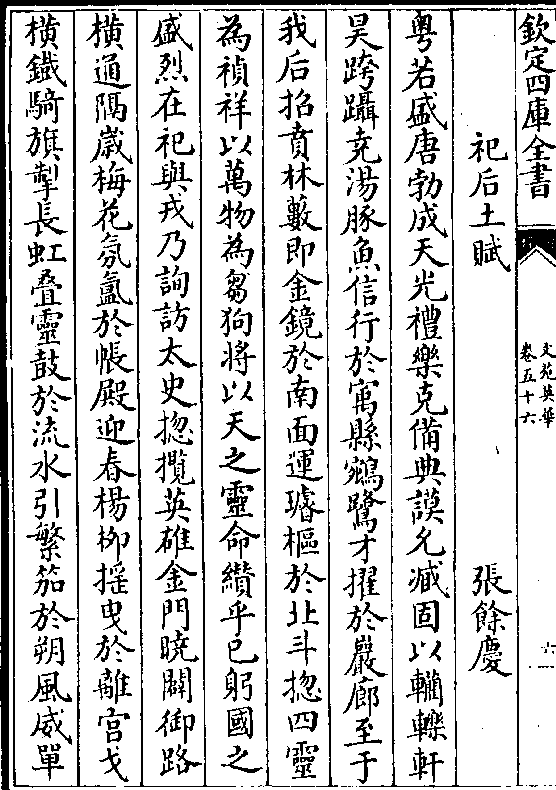 欽定四庫全書
文苑英華
卷五十六
六
祀后土賦
張餘慶
粤若盛唐勃成天光禮樂克備典謨允臧固以轥轢軒
昊跨躡堯湯豚魚信行於寓縣鵷鷺才擢於巖廊至于
我后招賁林藪即金鏡於南面運璿樞於北斗揔四靈
為禎祥以萬物為芻狗將以天之靈命纘乎已躬國之
盛烈在祀與戎乃詢訪太史揔攬英雄金門曉闢御路
橫通隅歲梅花氛氳於帳殿迎春楊栁揺曳於離宫戈
横鐡騎旗掣長虹叠靈鼓於流水引繁笳於朔風威單